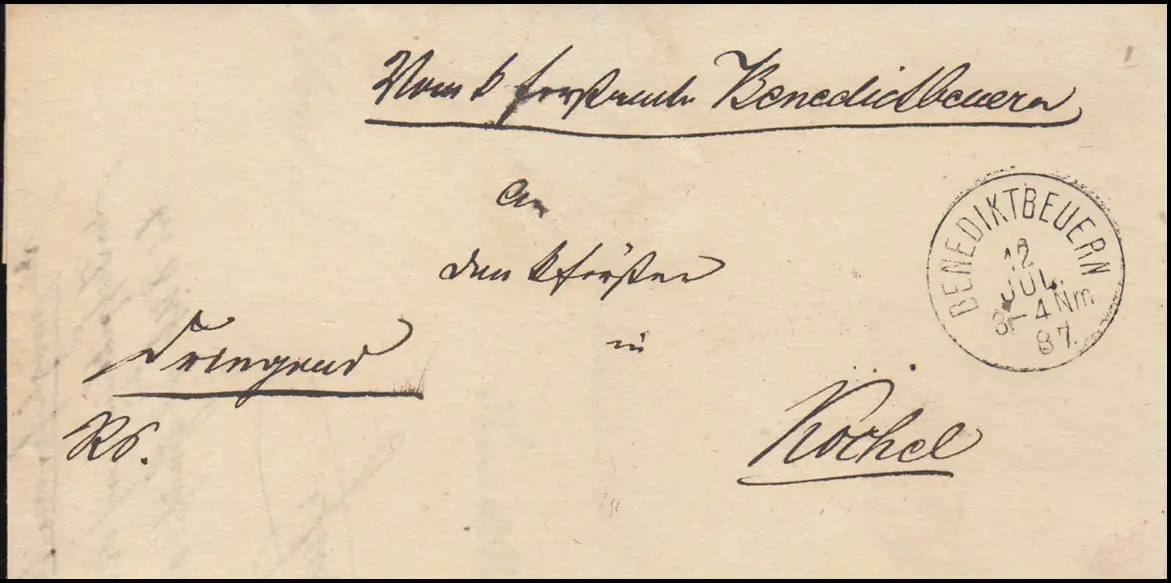 Vom k Forstamte Benedictbeuern
An
den k Förster
in
Kochel
Dringend
RS.
BENEDIKTBEUERN
12
JUL.
3-4 Nm
87.